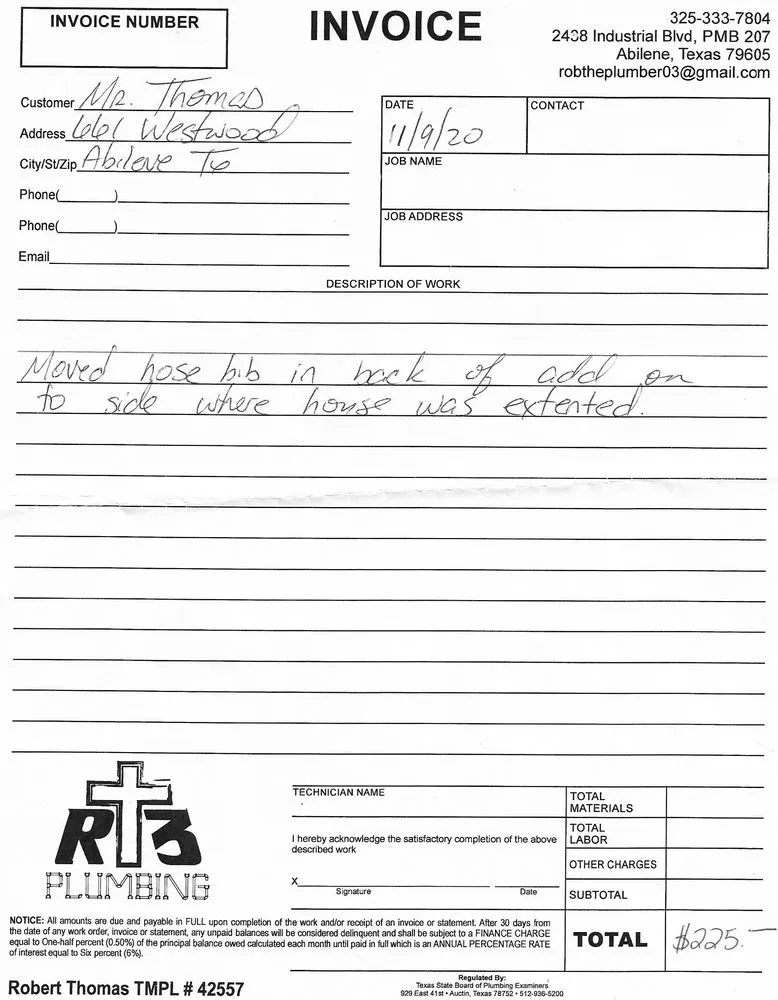 INVOICE NUMBER
INVOICE
325-333-7804
2438 Industrial Blvd, PMB 207
Abilene, Texas 79605
robtheplumber03@gmail.com
Customer Mr. Thomas
Address 6661 Westwood
City/St/Zip Abilene Tx
Phone( )
Phone( )
Email
DATE
11/9/20
CONTACT
JOB NAME
JOB ADDRESS
DESCRIPTION OF WORK
Moved hose bib in back of add on
to side where house was extented.
RT3
PLUMBING
TECHNICIAN NAME
I hereby acknowledge the satisfactory completion of the above
described work
X
Signature Date
TOTAL
MATERIALS
TOTAL
LABOR
OTHER CHARGES
SUBTOTAL
TOTAL $225.—
NOTICE: All amounts are due and payable in FULL upon completion of the work and/or receipt of an invoice or statement. After 30 days from
the date of any work order, invoice or statement, any unpaid balances will be considered delinquent and shall be subject to a FINANCE CHARGE
equal to One-half percent (0.50%) of the principal balance owed calculated each month until paid in full which is an ANNUAL PERCENTAGE RATE
of interest equal to Six percent (6%).
Robert Thomas TMPL # 42557
Regulated By:
Texas State Board of Plumbing Examiners
929 East 41st • Auctin, Texas 78752 • 512-936-5200